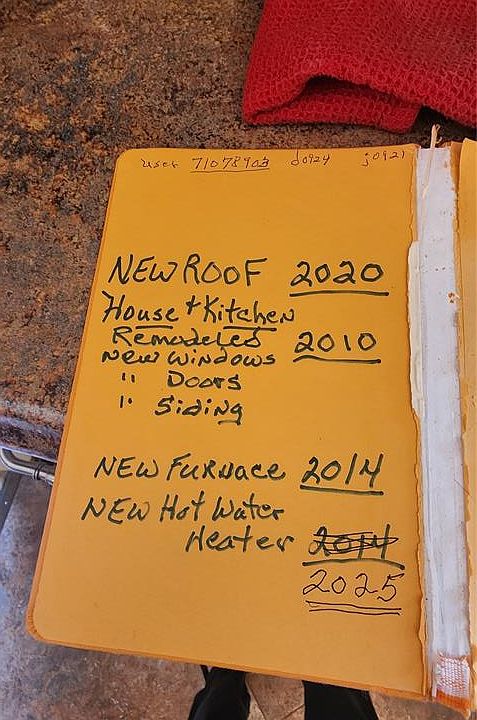 user 71078903 d0924 j0921
NEW ROOF 2020
House + Kitchen
Remodeled 2010
New Windows
" Doors
" Siding
NEW FURNACE 2014
NEW Hot Water
Heater 2014
2025